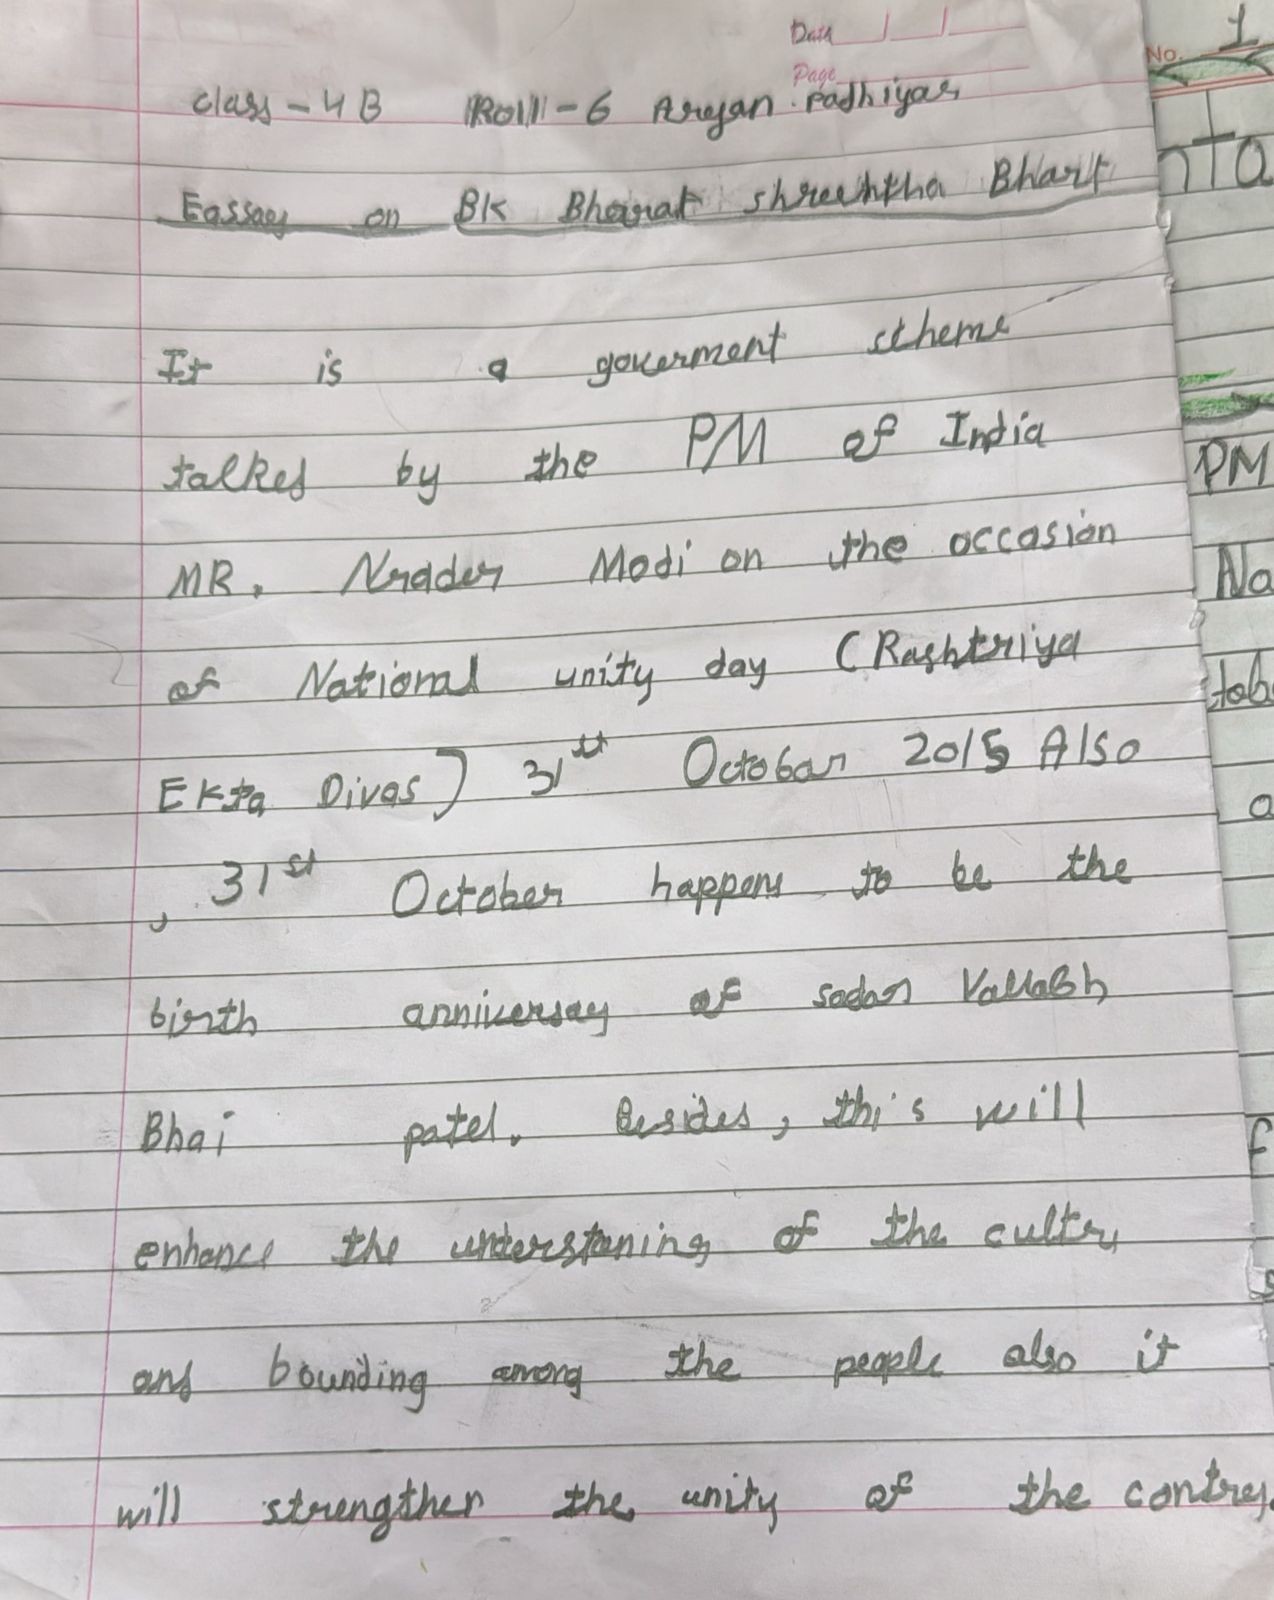 Date
Page
class - 4 B Roll - 6 Areyan Padhiyar
Eassaey on BK Bharat shreehtha Bhart
It is a goverment scheme
talked by the PM of India
MR. Nrader Modi on the occasion
of National unity day (Rashtriya
Ekta Divas) 31st Octobar 2015 Also
, 31st October happens to be the
birth anniversay of sadar Vallabh
Bhai patel. Besides, this will
enhance the understaning of the cultry
and bounding among the people also it
will strengthen the unity of the contrey.
No. 1
nTa
PM
Na
tob
a
f
s